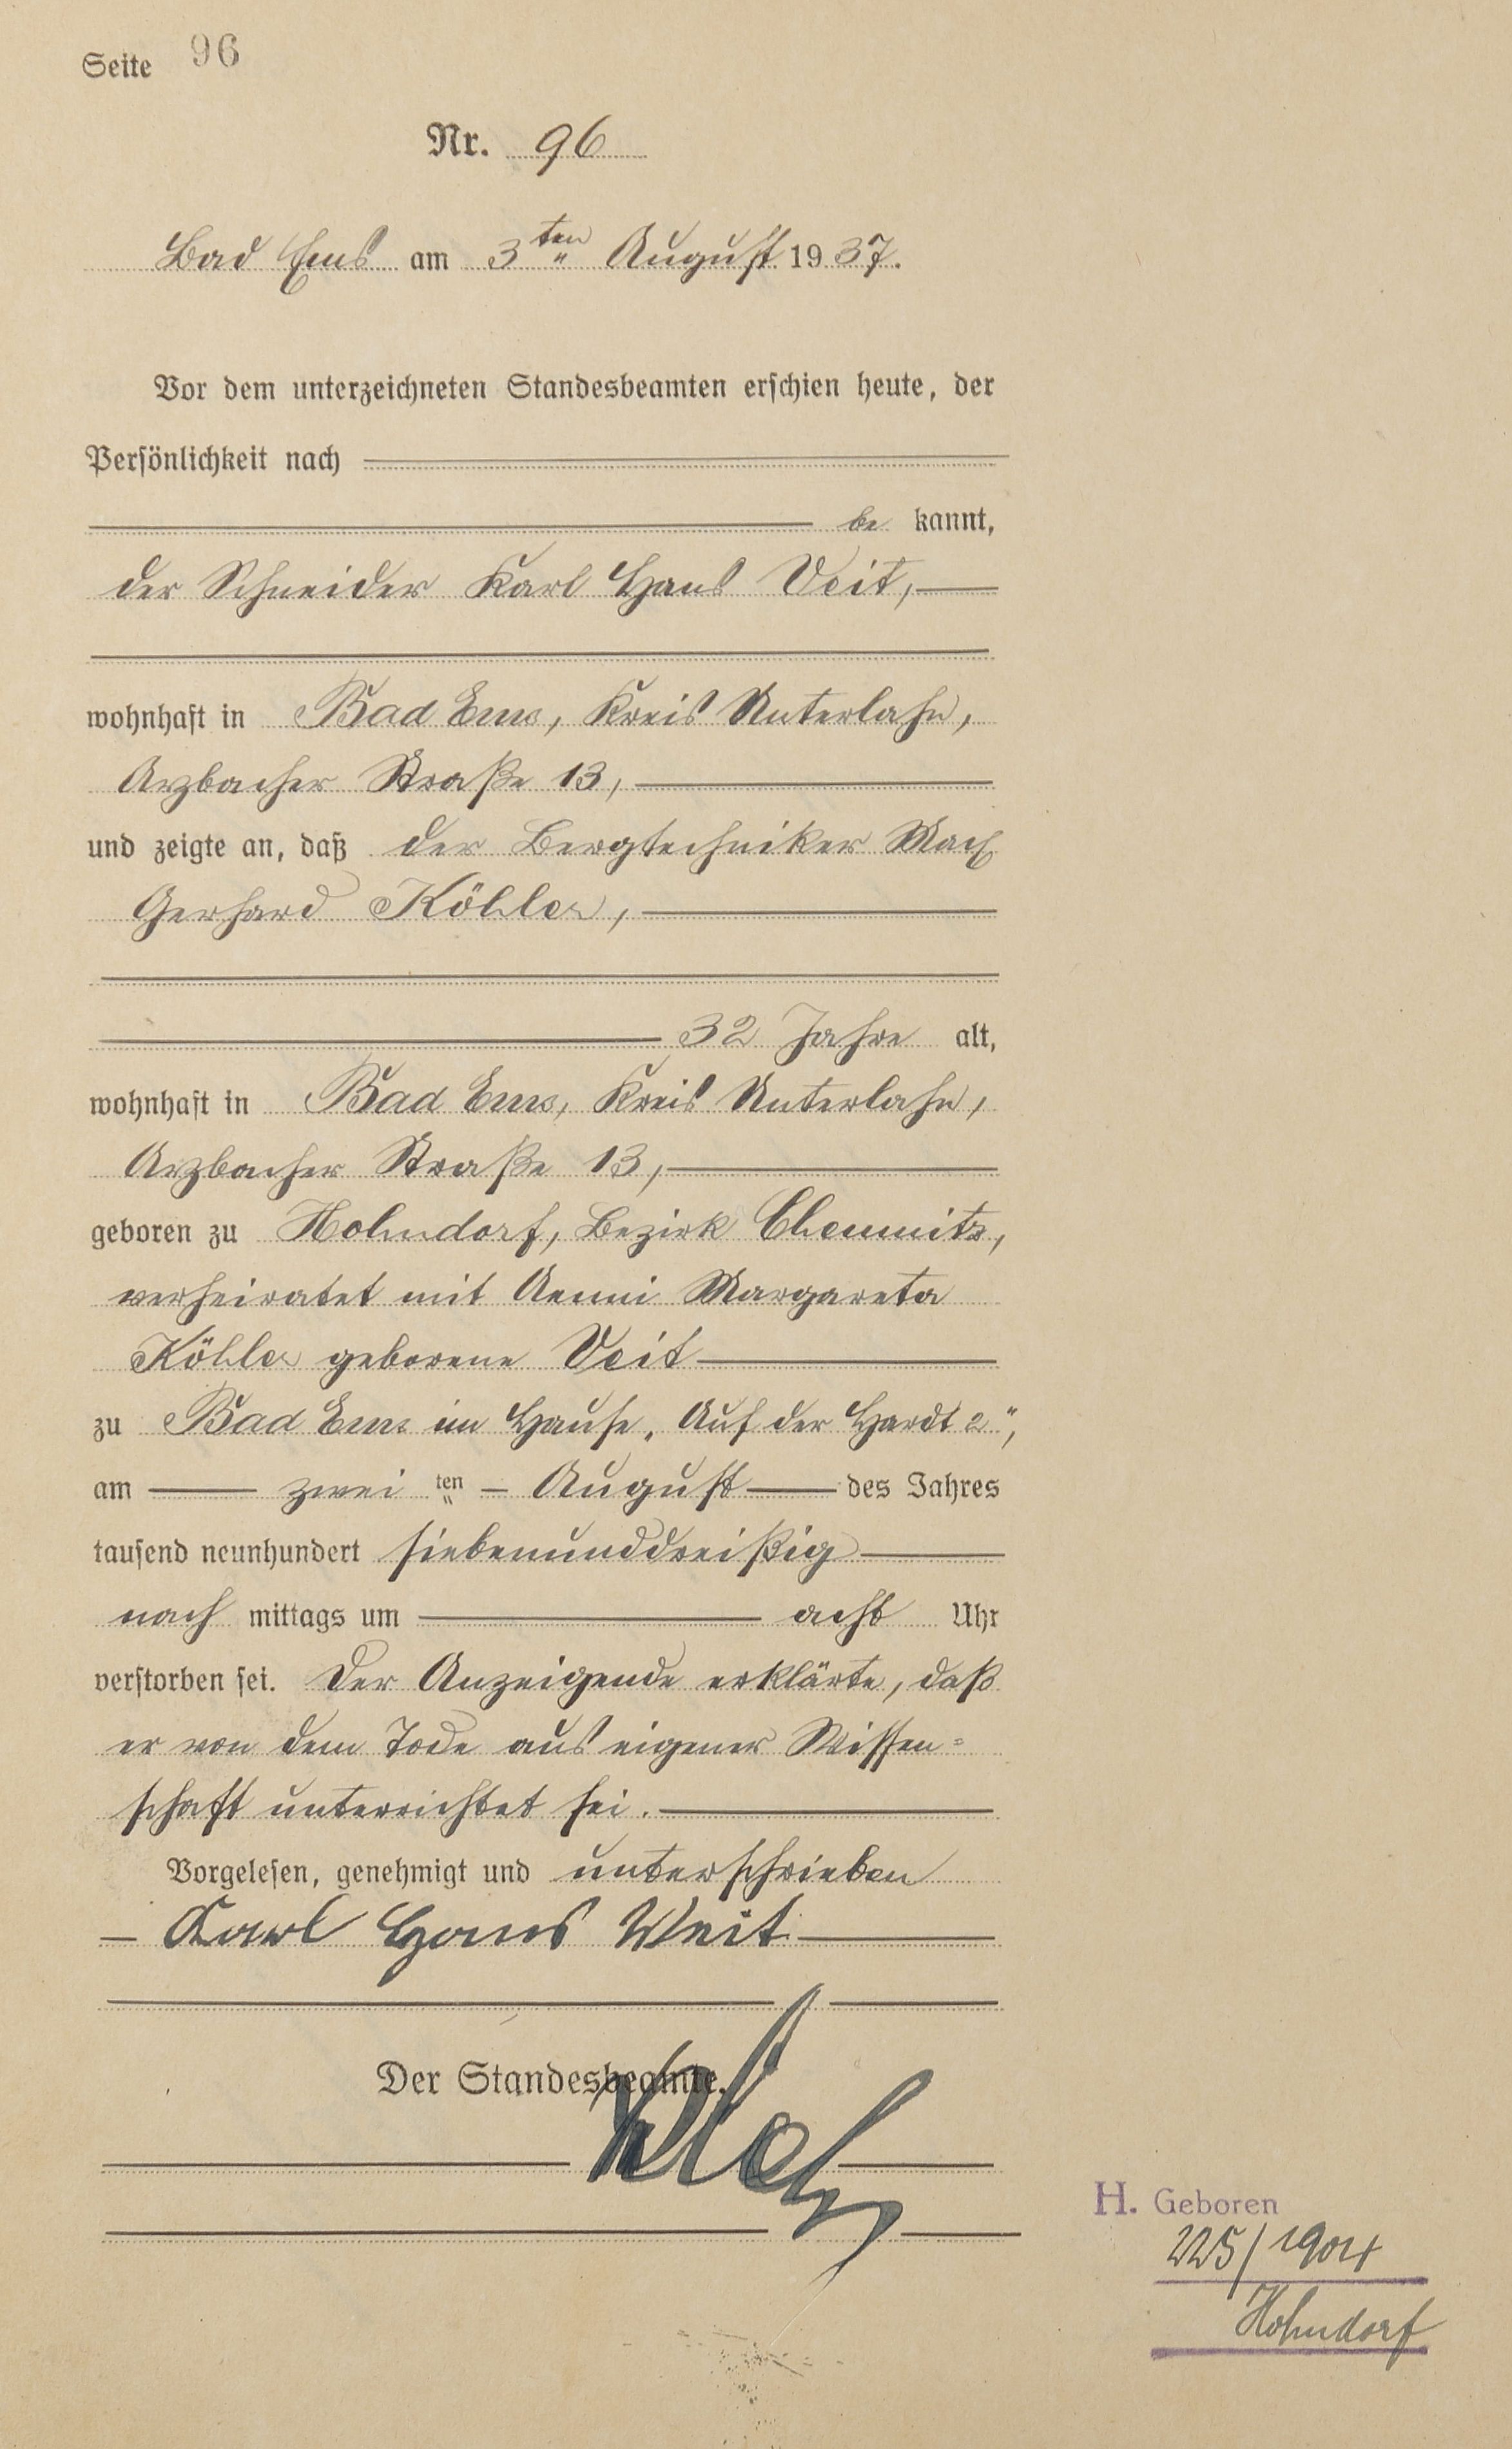 Seite 96
Nr. 96
Bad Ems am 3ten August 1937.
Vor dem unterzeichneten Standesbeamten erschien heute, der
Persönlichkeit nach
be kannt,
der Schneider Karl Hans Veit,
wohnhaft in Bad Ems, Kreis Unterlahn,
Arzbacher Straße 13,
und zeigte an, daß der Bergtechniker Max
Gerhard Köhler,
32 Jahre alt,
wohnhaft in Bad Ems, Kreis Unterlahn,
Arzbacher Straße 13,
geboren zu Hohndorf, Bezirk Chemnitz,
verheiratet mit Aenni Margareta
Köhler geborene Veit
zu Bad Ems im Hause „Auf der Hardt 2",
am zwei ten August des Jahres
tausend neunhundert siebenunddreißig
nach mittags um acht Uhr
verstorben sei. Der Anzeigende erklärte, daß
er von dem Tode aus eigener Wissen=
schaft unterrichtet sei.
Vorgelesen, genehmigt und unterschrieben
Karl Hans Veit
Der Standesbeamte.
H. Geboren
225/1904
Hohndorf